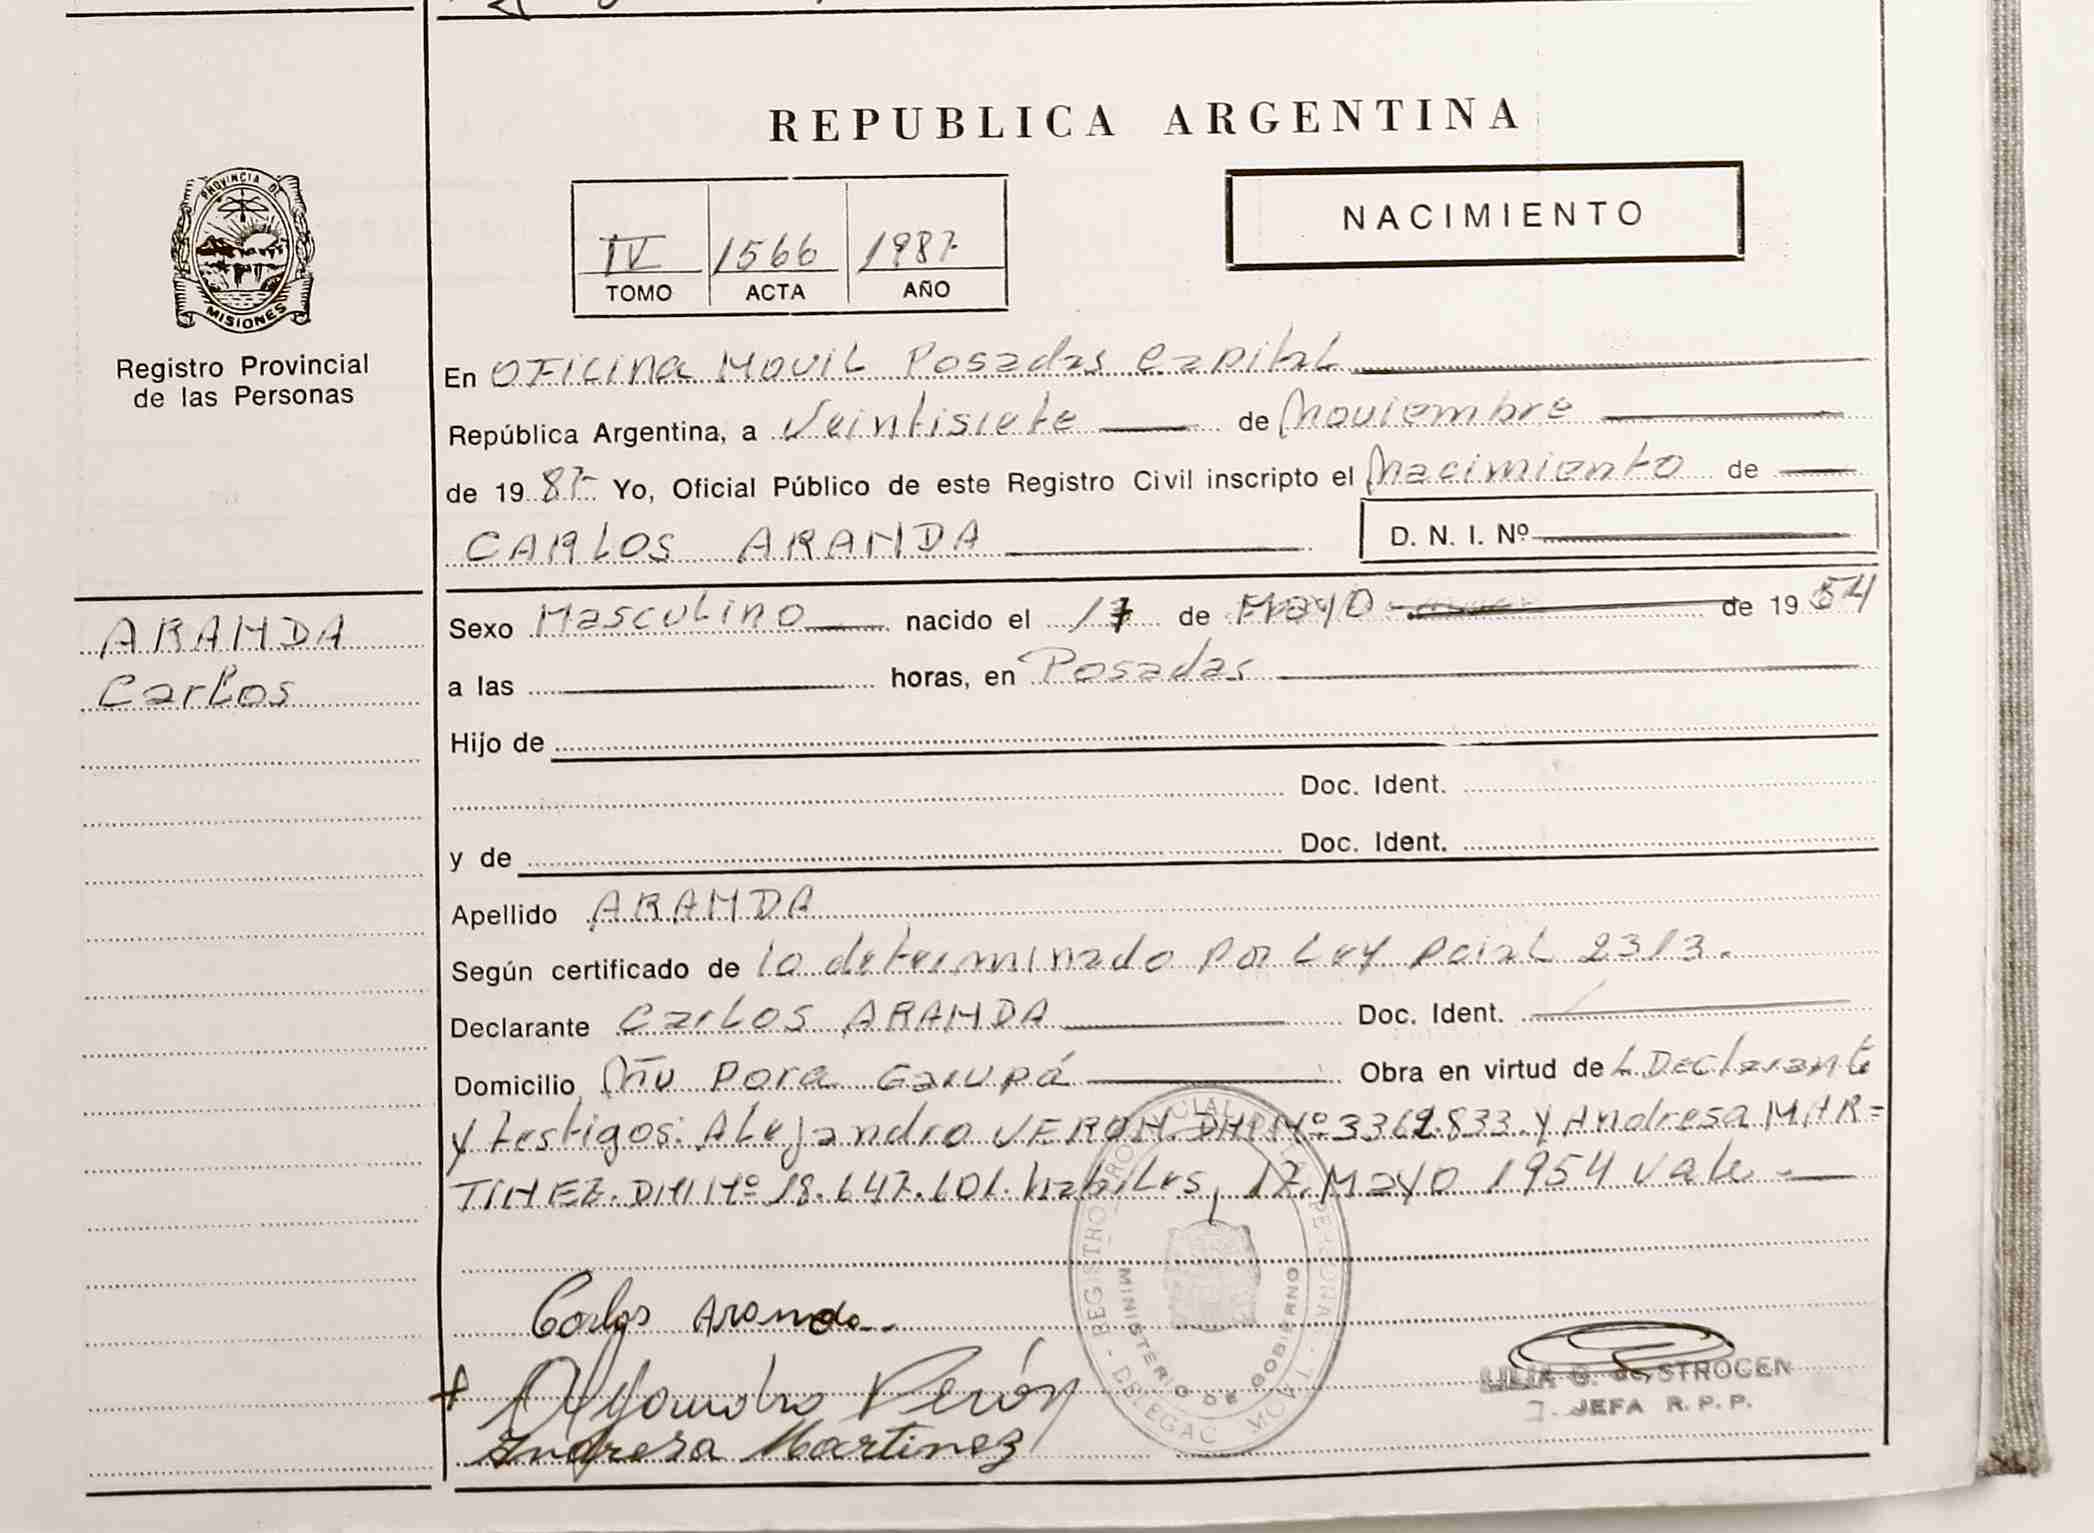 REPUBLICA ARGENTINA
NACIMIENTO
IV 1566 1987
TOMO ACTA AÑO
PROVINCIA DE
MISIONES
Registro Provincial
de las Personas
En OFICINA MOVIL Posadas Capital
República Argentina, a Veintisiete de Noviembre
de 19 87 Yo, Oficial Público de este Registro Civil inscripto el Nacimiento de
CARLOS ARANDA D. N. I. Nº
ARANDA
Carlos
Sexo Masculino nacido el 17 de Mayo de 19 54
a las horas, en Posadas
Hijo de
Doc. Ident.
y de Doc. Ident.
Apellido ARANDA
Según certificado de lo determinado por Ley pcial 2313.
Declarante Carlos ARANDA Doc. Ident.
Domicilio Ñu Pora Garupá Obra en virtud de L Declarante
y testigos: Alejandro VERON. DNI Nº 3362.833. y Andresa MAR=
TINEZ. DNI Nº 18.647.601. habiles, 17. Mayo 1954 Vale -
Carlos Aranda
Alejandro Verón
Andresa Martinez
REGISTRO PROVINCIAL DE LAS PERSONAS - DELEGAC. MOVIL -
MINISTERIO DE GOBIERNO
LILIA G. de STROCEN
JEFA R. P. P.